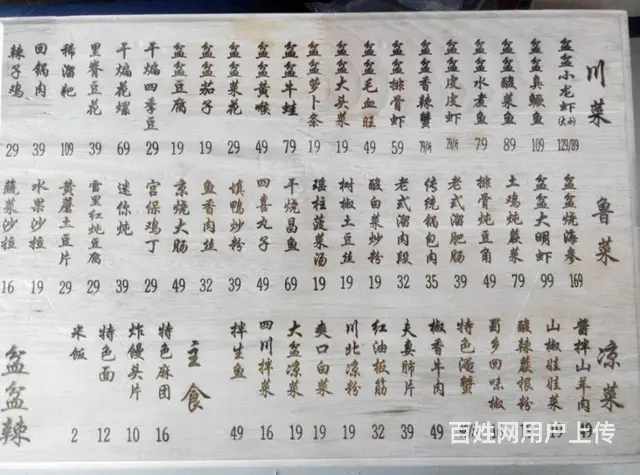 川菜
盆盆小龙虾(大/小) 129/89
盆盆臭鳜鱼 109
盆盆酸菜鱼 89
盆盆水煮鱼 79
盆盆皮皮虾
盆盆香辣蟹
盆盆排骨虾 59
盆盆毛血旺 49
盆盆大头菜 19
盆盆萝卜条 19
盆盆牛蛙 79
盆盆黄喉 49
盆盆菜花 29
盆盆茄子 19
盆盆豆腐 19
干煸四季豆 29
干煸花螺 69
里脊豆花 39
稀溜粑 109
回锅肉 39
辣子鸡 29
鲁菜
盆盆烧海参 169
盆盆大明虾 99
土鸡炖蕨菜 79
排骨炖豆角 49
老式溜肥肠 39
传统锅包肉 35
老式溜肉段 32
酸白菜炒粉 19
树椒土豆丝 19
瑶柱菠菜汤 19
干烧昌鱼 69
四喜丸子 49
填鸭炒粉 39
鱼香肉丝 32
京烧大肠 49
宫保鸡丁 39
迷你炖 29
雪里红炖豆腐 29
黄蘑土豆片 29
水果沙拉 19
蔬菜沙拉 16
凉菜
酱拌山羊肉 49
山椒娃娃菜 19
酸辣蕨根粉
蜀乡回味椒
特色淹蟹
椒香牛肉 49
夫妻肺片 39
红油板筋 32
川北凉粉 19
爽口白菜 19
大盆凉菜 19
四川拌菜 16
拌生鱼 49
主食
特色麻团 16
炸馒头片 10
特色面 12
米饭 2
盆盆辣
百姓网用户上传